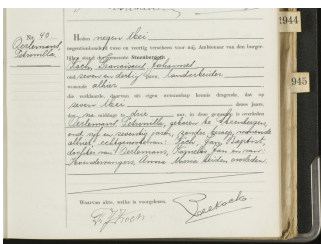 No. 40.
Oerlemans,
Petronilla
Heden negen Mei
negentienhonderd twee en veertig verscheen voor mij, Ambtenaar van den burger-
lijken stand der gemeente Steenbergen:
Koch, Franciscus Johannes
oud zeven en dertig jaar, landarbeider
wonende alhier
die verklaarde, daarvan uit eigen wetenschap kennis dragende, dat op
zeven Mei dezes jaars,
des na middags te drie uur, in deze gemeente is overleden
Oerlemans, Petronilla, geboren te Steenbergen,
oud en zeventig jaren, zonder beroep, wonende
alhier, echtgenoote van Koch, Jan Baptist,
dochter van Oerlemans, en van
Anna Maria beiden overleden.
Waarvan akte, welke is voorgelezen.
F. J. Koch.
1944
945